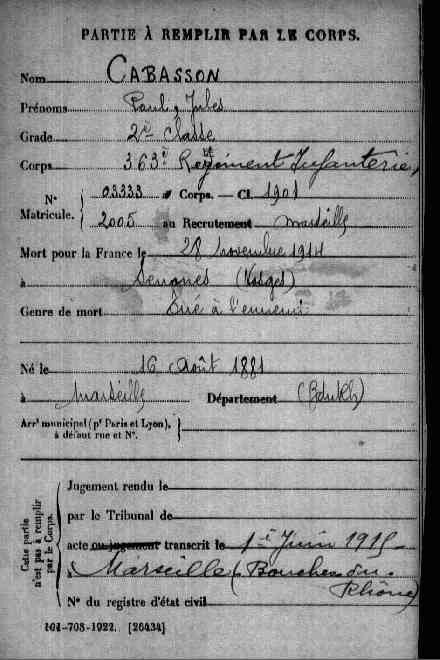 PARTIE À REMPLIR PAR LE CORPS.
Nom CABASSON
Prénoms Paul, Jules
Grade 2e classe
Corps 363e Régiment Infanterie
N° Matricule. { 03333 au Corps. — Cl. 1901
2005 au Recrutement Marseille
Mort pour la France le 28 novembre 1914
à Senones (Vosges)
Genre de mort Tué à l'ennemi
Né le 16 Août 1881
à Marseille Département (Bdu Rh)
Arrt municipal (pr Paris et Lyon), à défaut rue et N°. }
Cette partie n'est pas à remplir par le Corps.
Jugement rendu le
par le Tribunal de
acte ou jugement transcrit le 1er Juin 1915
à Marseille (Bouches du
Rhône)
N° du registre d'état civil
101-708-1922. [26434]